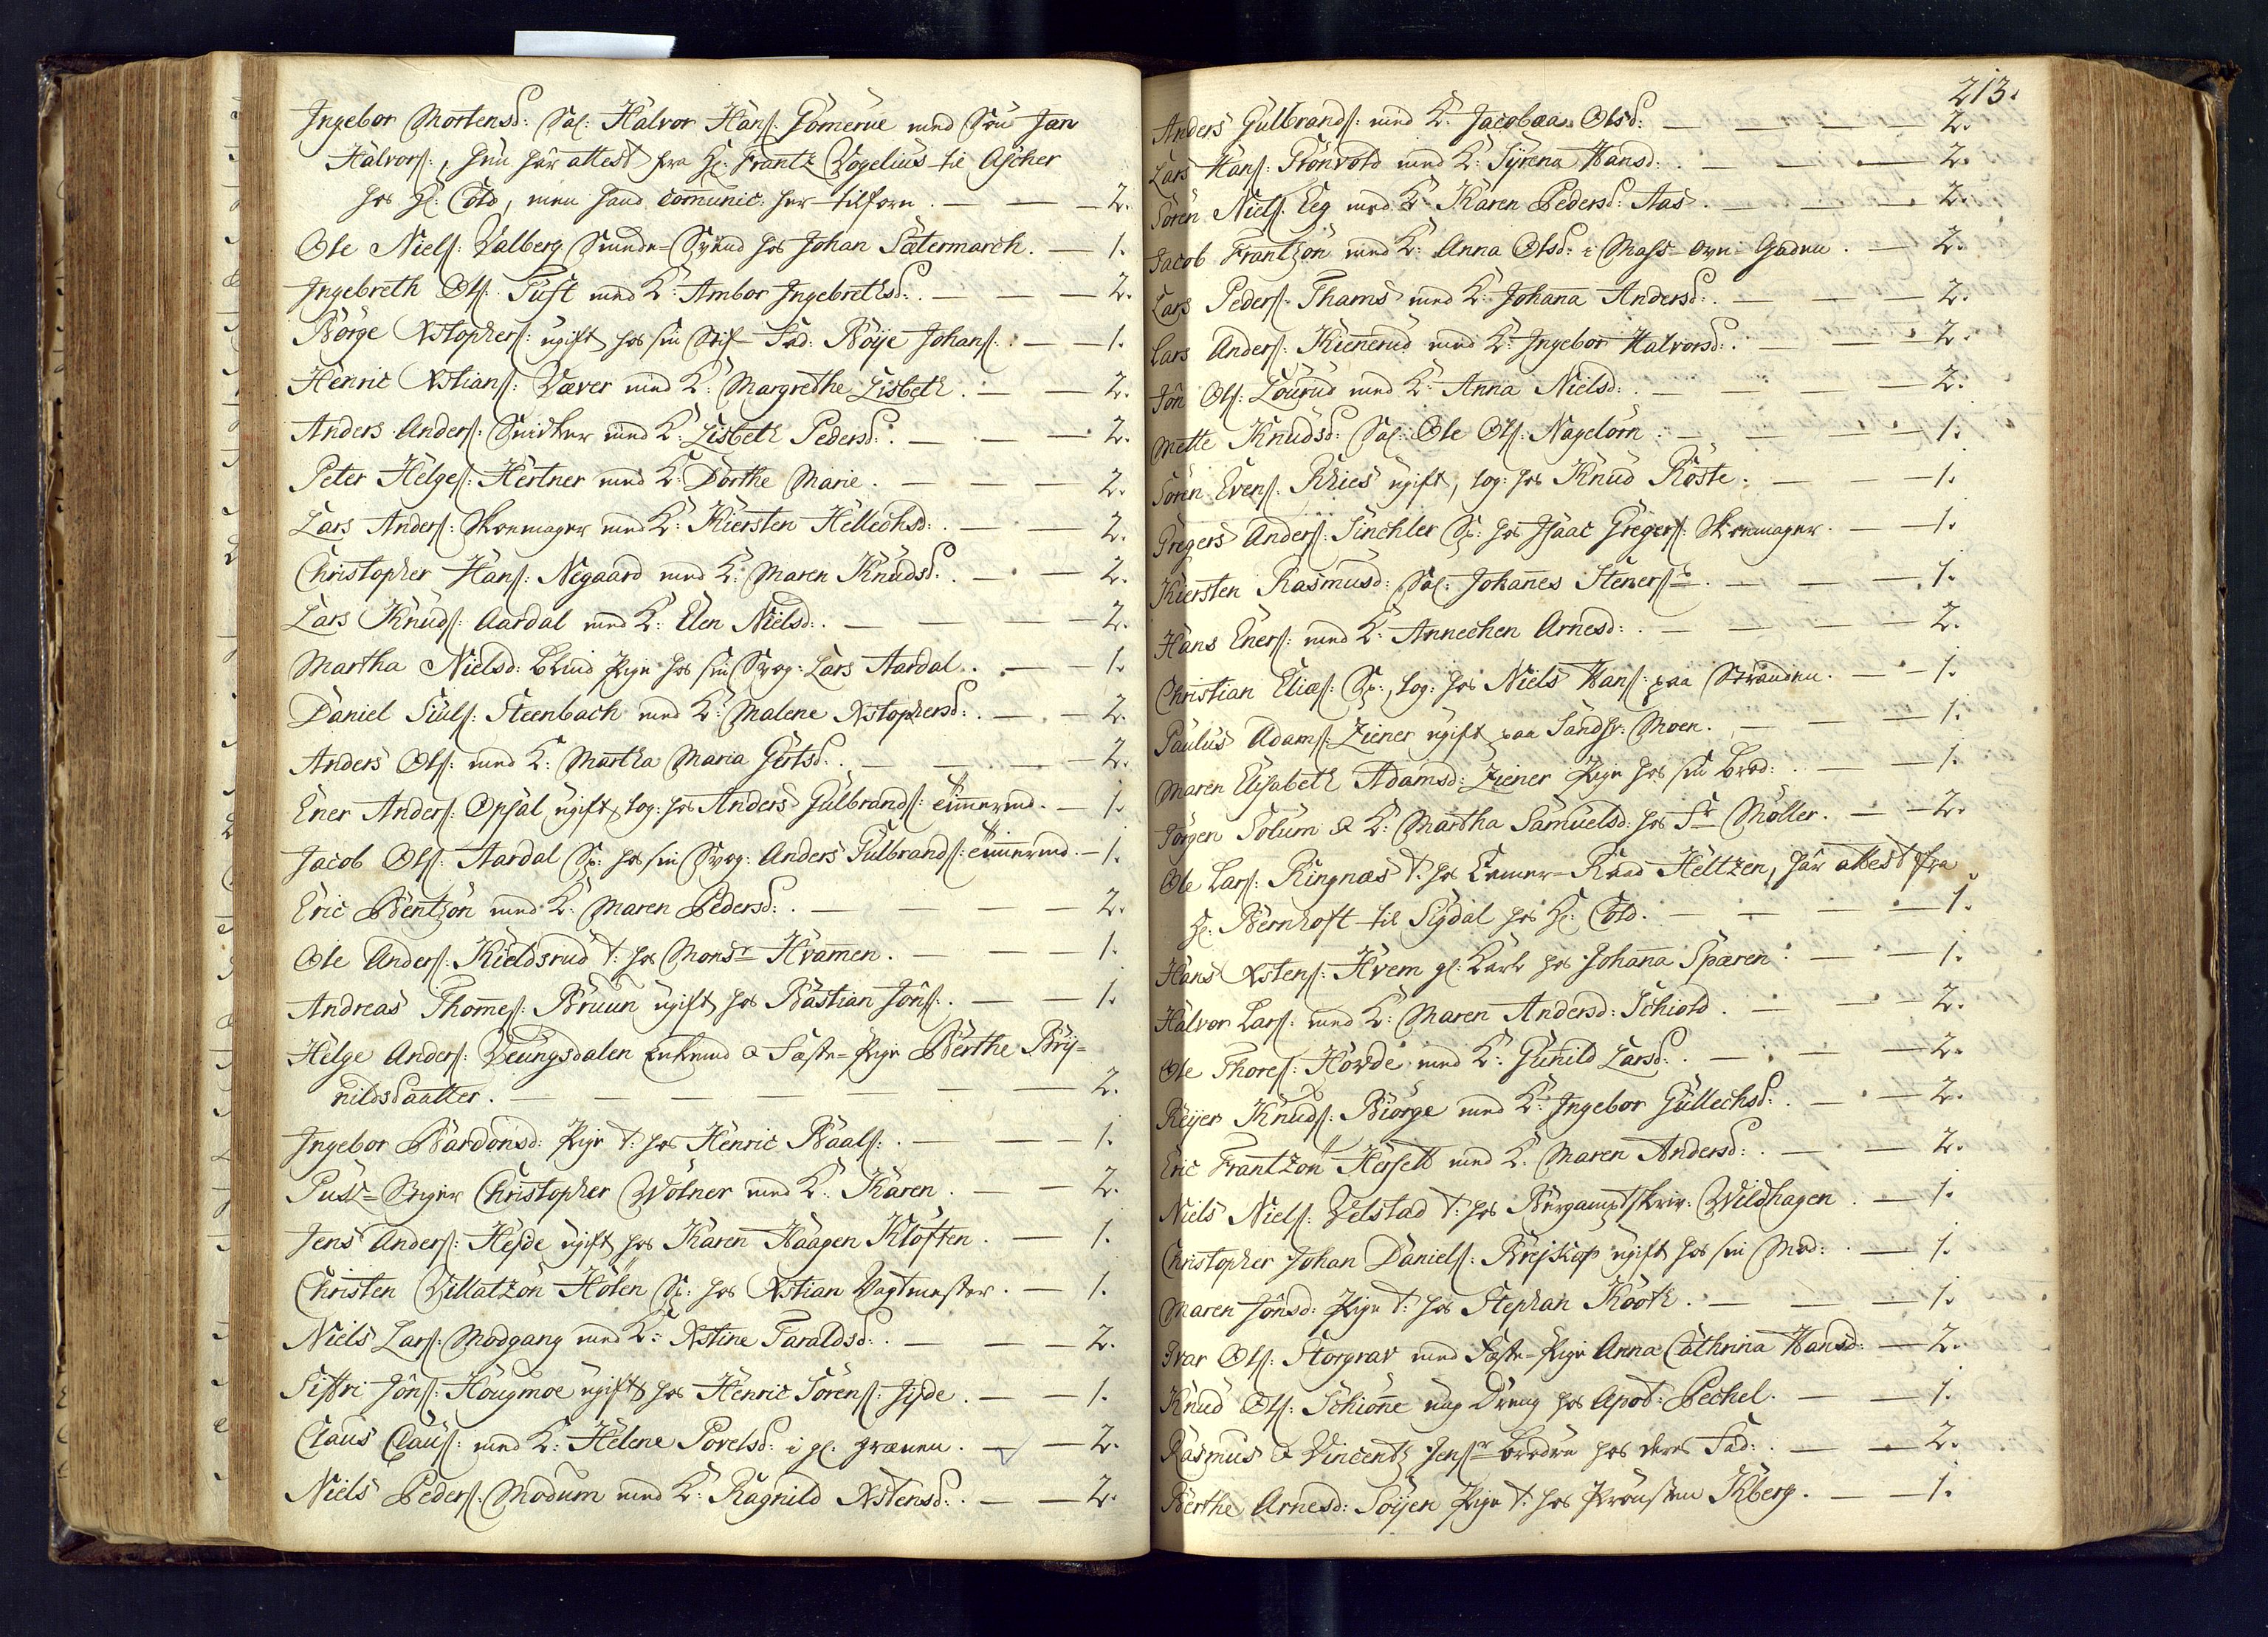 Ingebor Mortensd: Sal: Halvor Hans: Gomerue med Søn Jan
Halvors:, hun har attest fra Hr: Frantz Vogelius til Ascher
hos Hr: Cold, men hand com̄unic: her tilforn. — — — 2.
Ole Niels: Valberg Smede-Svend hos Johan Sætermarch. — 1.
Ingebreth Ols: Tuft med K: Ambor Ingebrethsd:. — — — 2.
Børge Xstophers: ugift hos sin Stif-Fad: Boije Johans: — — 1.
Henric Xstians: Væver med K: Margrethe Lisbeth. — — 2.
Anders Anders: Snidker med K: Lisbeth Pedersd:. — — — 2.
Peter Helges: Hertner med K: Dorthe Marie. — — — 2.
Lars Anders: Skoemager med K: Kiersten Hellechsd:. — — 2.
Christopher Hans: Negaard med K: Maren Knudsd:. — — 2.
Lars Knuds: Aardal med K: Elen Nielsd:. — — — — 2.
Martha Nielsd: blind Pige hos sin Svog: Lars Aardal. . — — 1.
Daniel Siuls: Steenbach med K: Malene Xstophersd:. — — 2.
Anders Ols: med K: Martha Maria Gertsd:. — — — 2.
Ener Anders: Opsal ugift, log: hos Anders Gulbrands: Tim̄ermd. — 1.
Jacob Ols: Aardal Sp: hos sin Svog: Anders Gulbrands: Tim̄ermd. — 1.
Eric Bentzon med K: Maren Pedersd:. — — — — 2.
Ole Anders: Kieldsrud t: hos Monsr Hvam̄en. — — — 1.
Andreas Thom̄es: Bruun ugift hos Bastian Jons:. — — 1.
Helge Anders: Veungsdalen Enkemd & Fæste-Pige Berthe Bry-
nildsdaatter. — — — — — — — 2.
Ingebor Bardonsd: Pige t: hos Henric Baals:. — — — 1.
Puk-Stiger Christopher Wolner med K: Karen. — — 2.
Jens Anders: Hejde ugift hos Karen Haagen Kloften. — — 1.
Christen Villatzon Holen Sp: hos Xstian Vagtmester. — 1.
Niels Lars: Modgang med K: Xstine Taraldsd:. — — — 2.
Siffri Jons: Hougmoe ugift hos Henric Sorens: Jyde. — — 1.
Claus Claus: med K: Helene Povelsd: i gl: gruven. — — 2.
Niels Peders: Modum med K: Ragnild Xstensd:. — — 2.
213.
Anders Gulbrands: med K: Jacobaa Olsd: — — — — 2.
Lars Hans: Gronvold med K: Syrena Hansd:. — — — 2.
Soren Niels: Eeg med K: Karen Pedersd: Aas. — — — 2.
Jacob Frantzon med K: Anna Olsd: i Mass-ovn-Gaden. — 2.
Lars Peders: Thams med K: Johan̄a Andersd:. — — — 2.
Lars Anders: Kienerud med K: Ingebor Halvorsd:. — — — 2.
Jon Ols: Lourud med K: Anna Nielsd:. — — — — 2.
Mette Knudsd: Sal: Ole Ols: Nagelorn. — — — — 1.
Soren Evens: Rhies ugift, log: hos Knud Roste. — — — 1.
Gregers Anders: Sinchler Sp: hos Isaac Gregers: Skoemager. — 1.
Kiersten Rasmusd: Sal: Johan̄es Steners:. — — — 1.
Hans Eners: med K: Annechen Arnesd:. — — — — 2.
Christian Elias: Sp:, log: hos Niels Hans: paa Stranden. — 1.
Paulus Adams: Ziener ugift paa Sandsv: Moen. — — — 1.
Maren Elisabeth Adamsd: Ziener Pige hos sin Brod:. — — 1.
Jorgen Solum & K: Martha Samuelsd: hos Sr Møller. — 2.
Ole Lars: Ringnæs t: hos Kamer-Raad Heltzen, har attest fra
Hr: Bernhoft til Sigdal hos Hr: Cold. — — — — 1.
Hans Xstens: Hvem gl: karl hos Johan̄a Sparen. — — — 1.
Halvor Lars: med K: Maren Andersd: Schiold. — — — 2.
Ole Thores: Hovde med K: Gunild Larsd:. — — — 2.
Reijer Knuds: Biorge med K: Ingebor Gullechsd:. — — 2.
Eric Frantzon Hersett med K: Maren Andersd:. — — 2.
Niels Niels: Velstad t: hos Bergamptskriv: Wildhagen. — 1.
Christopher Johan Daniels: Brejskop ugift hos sin Mod:. — 1.
Maren Jonsd: Pige t: hos Stephan Kooth. — — — 1.
Ivar Ols: Storgrav med Fæste-Pige Anna Cathrina Hansd: — 2.
Knud Ols: Schion̄e ung Dreng hos Apot: Pechel. — — 1.
Rasmus & Vincentz Jensr brødre hos deres Fad:. — — 2.
Berthe Arnesd: Soijen Pige t: hos Provsten Kberg. — — 1.